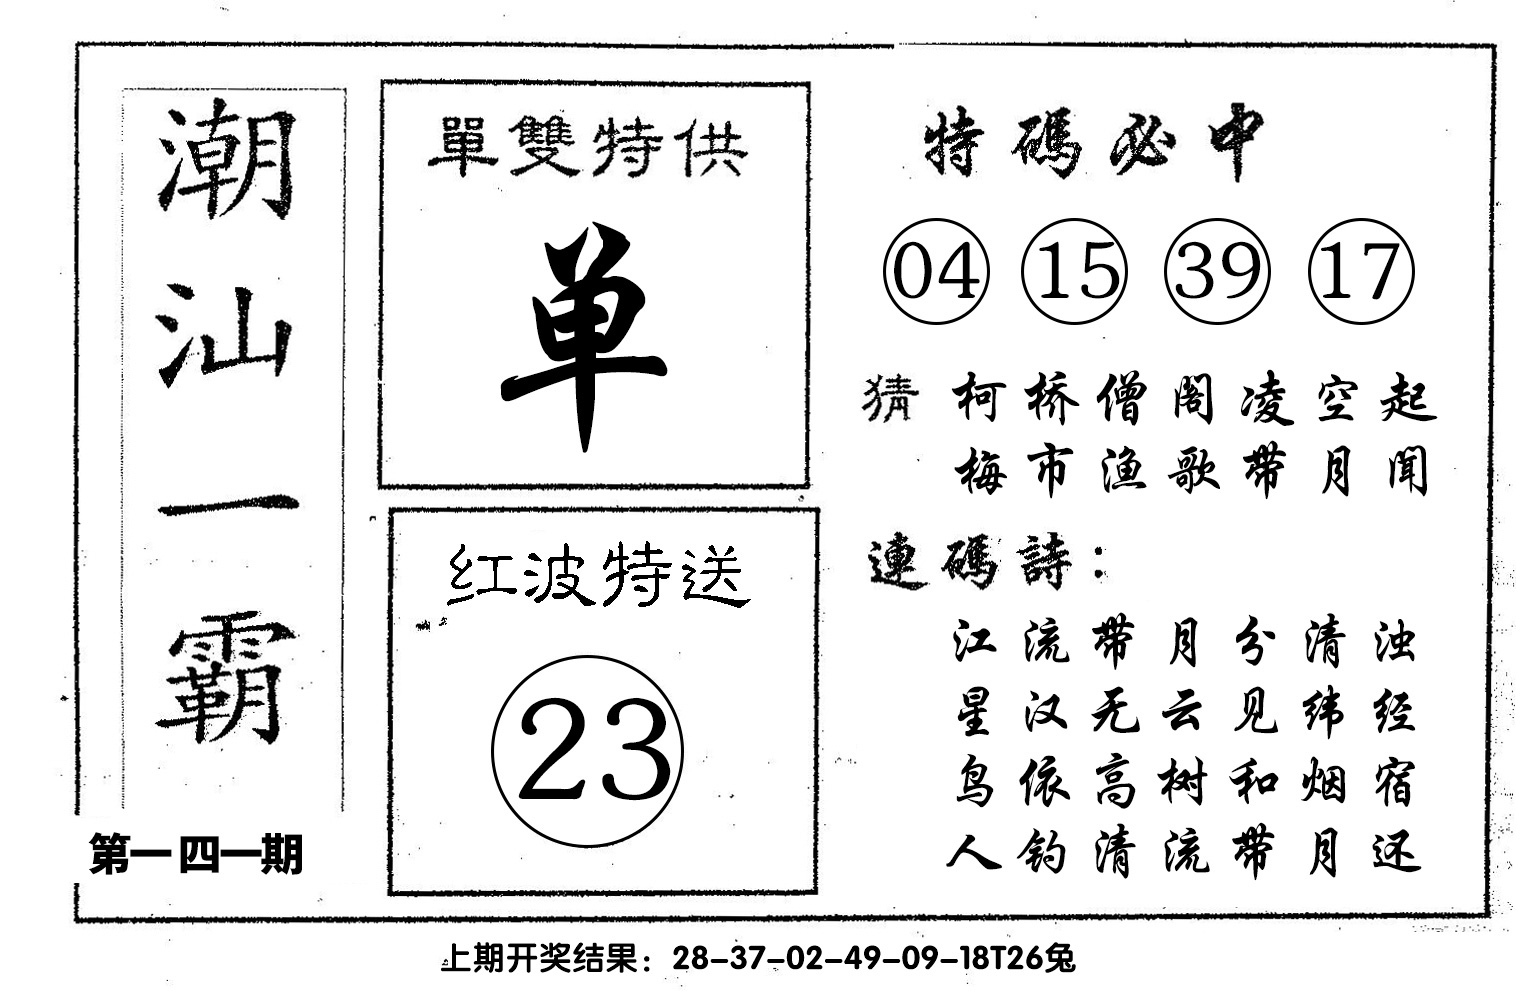 潮汕一霸
第一四一期
單雙特供
单
红波特送
23
特碼必中
04 15 39 17
猜 柯桥僧阁凌空起
梅市渔歌带月闻
連碼詩：
江流带月分清浊
星汉无云见纬经
鸟依高树和烟宿
人钓清流带月还
上期开奖结果：28-37-02-49-09-18T26兔